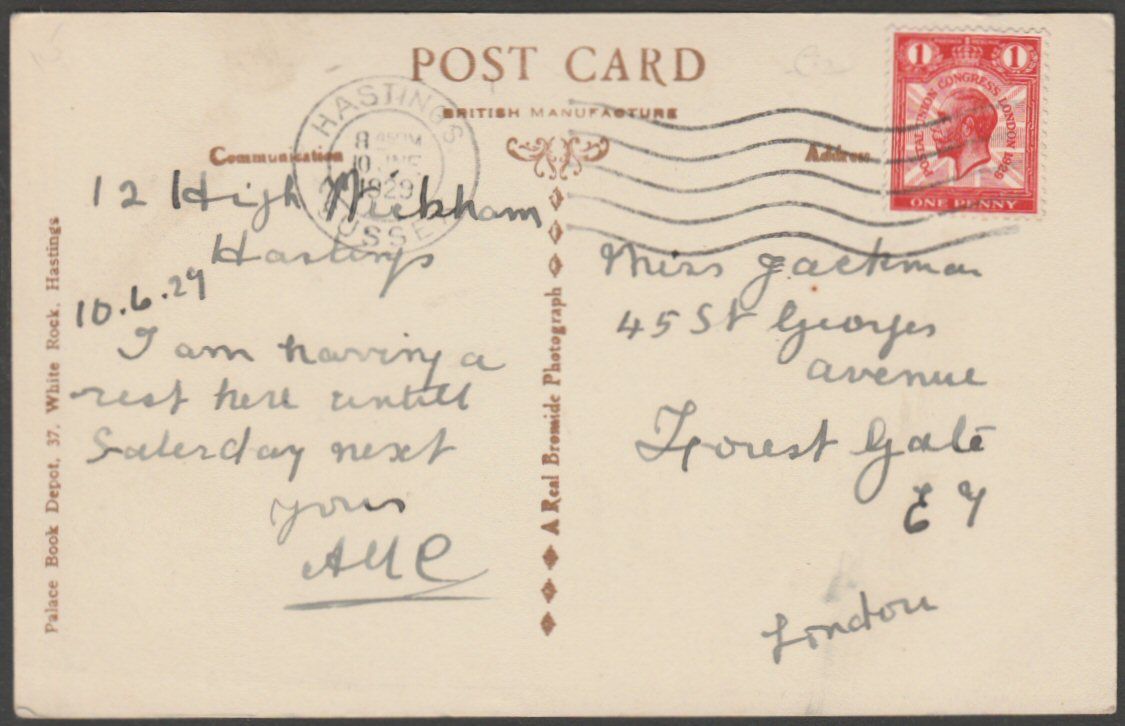 POST CARD
BRITISH MANUFACTURE
Communication
Address
HASTINGS
8
10 JNE
1929
SUSSEX
1 1
POSTAL UNION CONGRESS LONDON 1929
ONE PENNY
12 High Wickham
Hastings
10.6.29
I am having a
rest here untill
Saterday next
yours
Miss Jackman
45 St Georges
avenue
Forest Gate
E 7
London
A Real Bromide Photograph
Palace Book Depot, 37, White Rock, Hastings